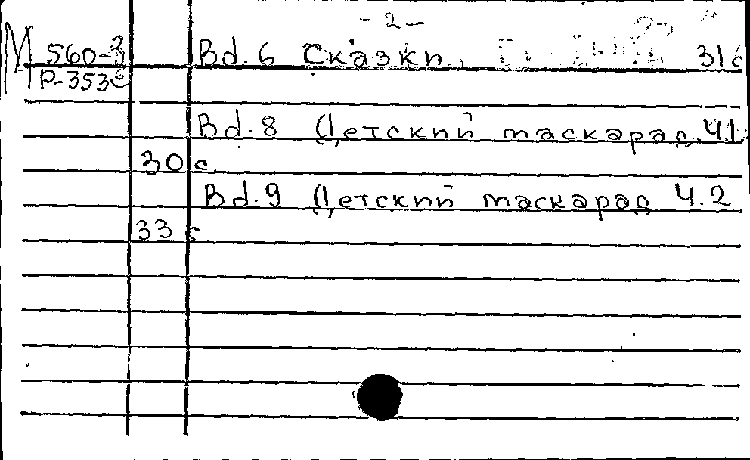 - 2 -
М 560-2 Bd. 6 Сказки. 31с
Р-353
Bd. 8 Детский маскарад Ч.1
30 с
Bd. 9 Детский маскарад Ч.2
33 с